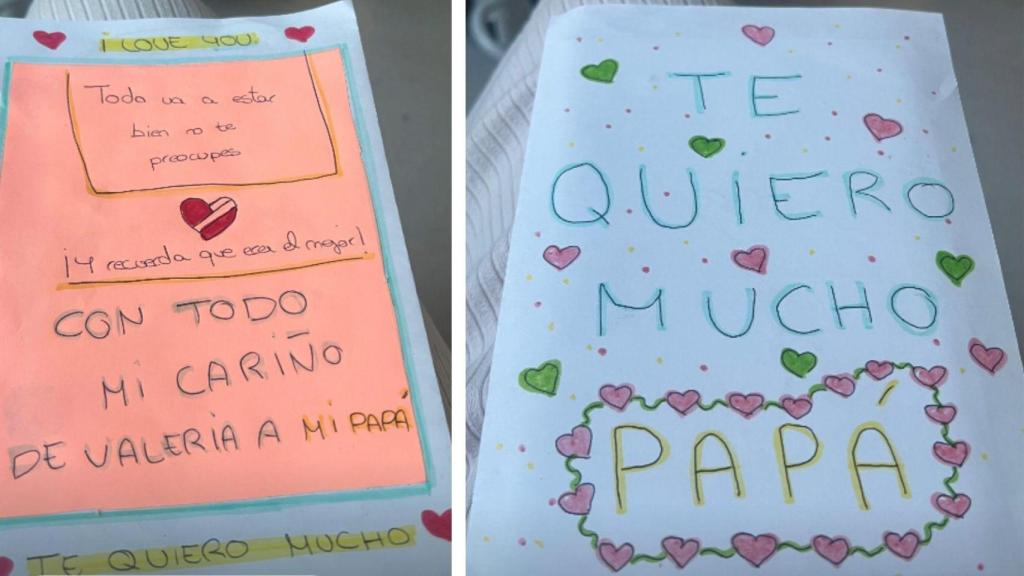 I LOVE YOU
Todo va a estar
bien no te
preocupes
¡Y recuerda que eres el mejor!
CON TODO
MI CARIÑO
DE VALERIA A MI PAPÁ
TE QUIERO MUCHO
TE
QUIERO
MUCHO
PAPÁ